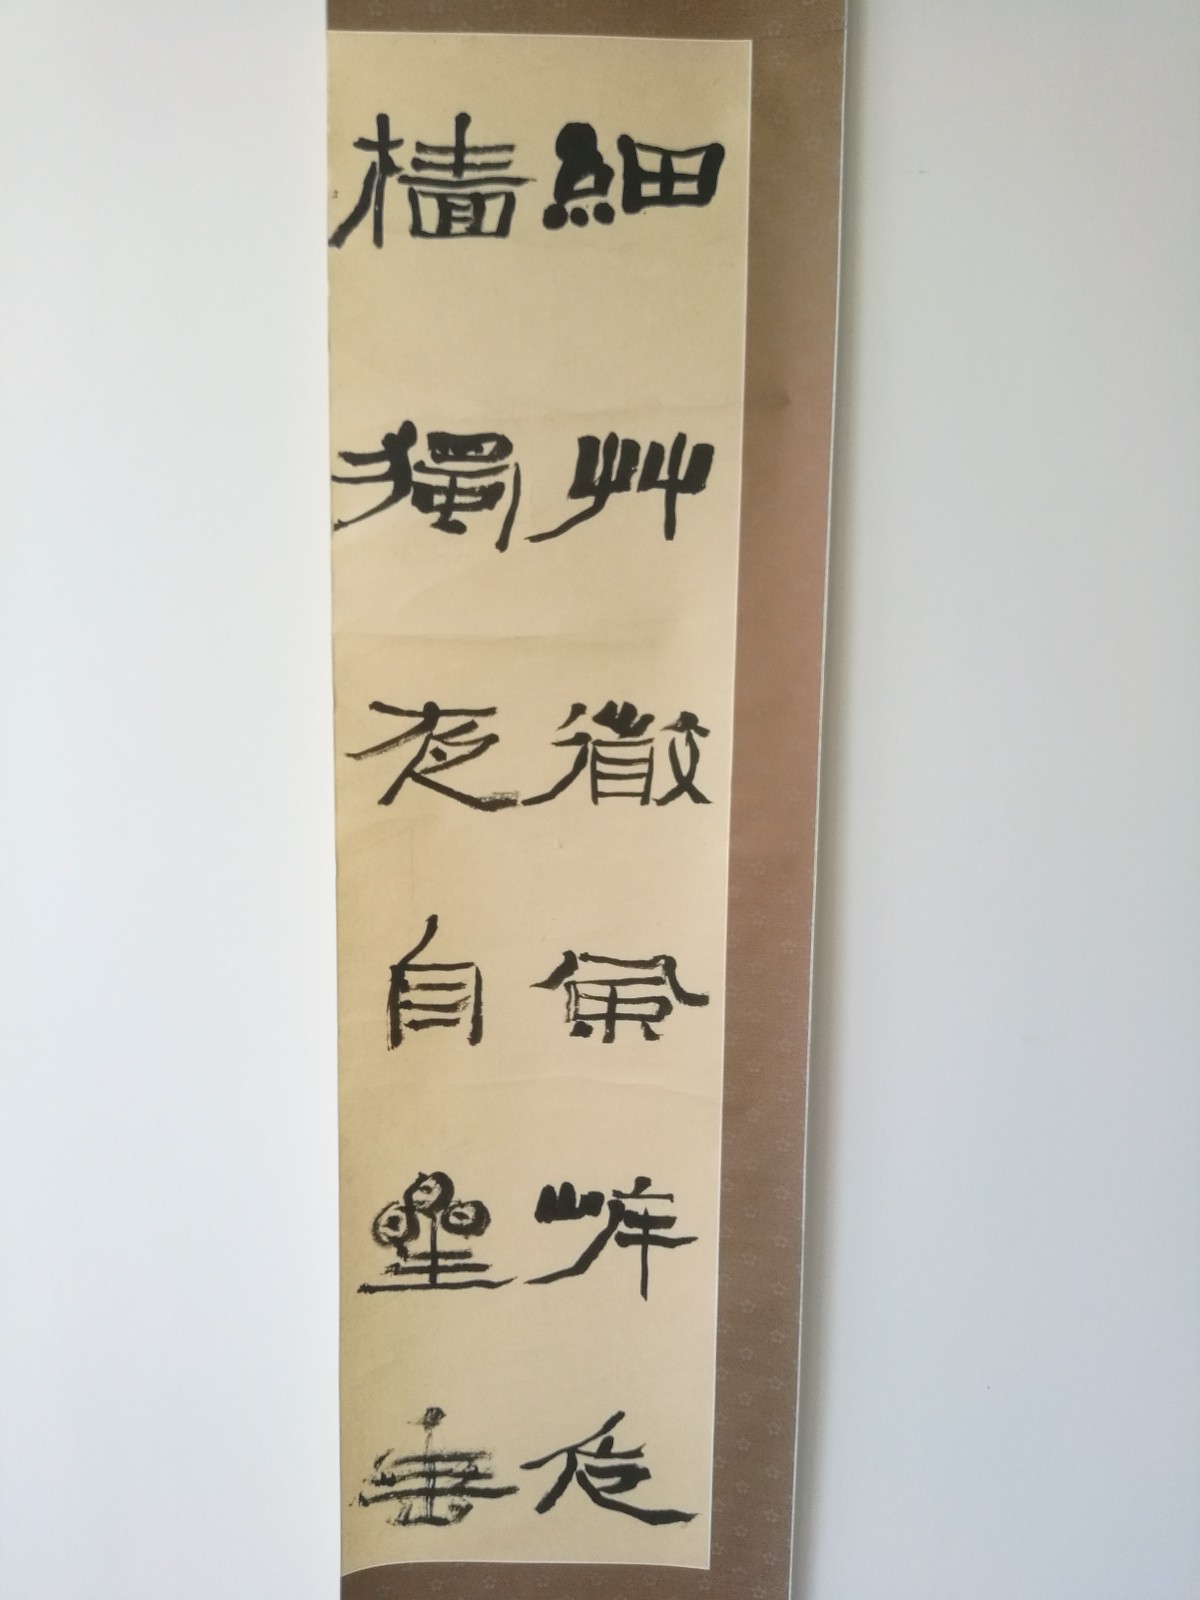 細艸微風岸危
檣獨夜自星垂